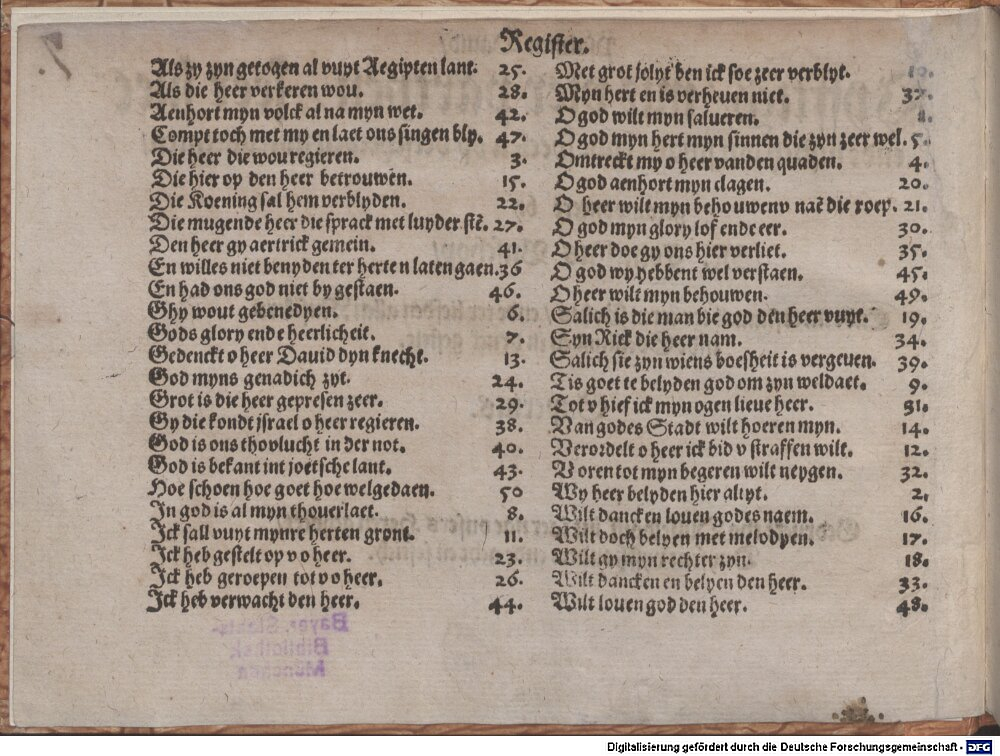 Register.
Als zy zyn getogen al vuyt Aegipten lant. 25.
Als die heer verkeren wou. 28.
Aenhort myn volck al na myn wet. 42.
Compt toch met my en laet ons singen bly. 47.
Die heer die wou regieren. 3.
Die hier op den heer betrouwen. 15.
Die Koening sal hem verblyden. 22.
Die mugende heer die sprack met luyder stē. 27.
Den heer gy aertrick gemein. 41.
En willes niet benyden ter herten laten gaen. 36
En had ons god niet by gestaen. 46.
Ghy wout gebenedyen. 6.
Gods glory ende heerlicheit. 7.
Gedenckt o heer Dauid dyn knecht. 13.
God myns genadich zyt. 24.
Grot is die heer gepresen zeer. 29.
Gy die kondt jsrael o heer regieren. 38.
God is ons thovlucht in der not. 40.
God is bekant int joetsche lant. 43.
Hoe schoen hoe goet hoe welgedaen. 50
In god is al myn thouerlaet. 8.
Ick sall vuyt mynre herten gront. 11.
Ick heb gestelt op v o heer. 23.
Ick heb geroepen tot v o heer. 26.
Ick heb verwacht den heer. 44.
Met grot jolyt ben ick soe zeer verblyt. 10.
Myn hert en is verheuen niet. 37.
O god wilt myn salueren. 1.
O god myn hert myn sinnen die zyn zeer wel. 5.
Omtreckt my o heer vanden quaden. 4.
O god aenhort myn clagen. 20.
O heer wilt myn behouwenv naē die roep. 21.
O god myn glory lof ende eer. 30.
O heer doe gy ons hier verliet. 35.
O god wy hebbent wel verstaen. 45.
O heer wilt myn behouwen. 49.
Salich is die man bie god den heer vuyt. 19.
Syn Rick die heer nam. 34.
Salich sie zyn wiens boesheit is vergeuen. 39.
Tis goet te belyden god om zyn weldaet. 9.
Tot v hief ick myn ogen lieue heer. 31.
Van godes Stadt wilt hoeren myn. 14.
Verordelt o heer ick bid v straffen wilt. 12.
Voren tot myn begeren wilt neygen. 32.
Wy heer belyden hier altyt. 2.
Wilt danck en louen godes naem. 16.
Wilt doch belyen met melodyen. 17.
Wilt gy myn rechter zyn. 18.
Wilt dancken en belyen den heer. 33.
Wilt louen god den heer. 48.
Bayer. Staats-
Bibliothek
München
Digitalisierung gefördert durch die Deutsche Forschungsgemeinschaft - DFG